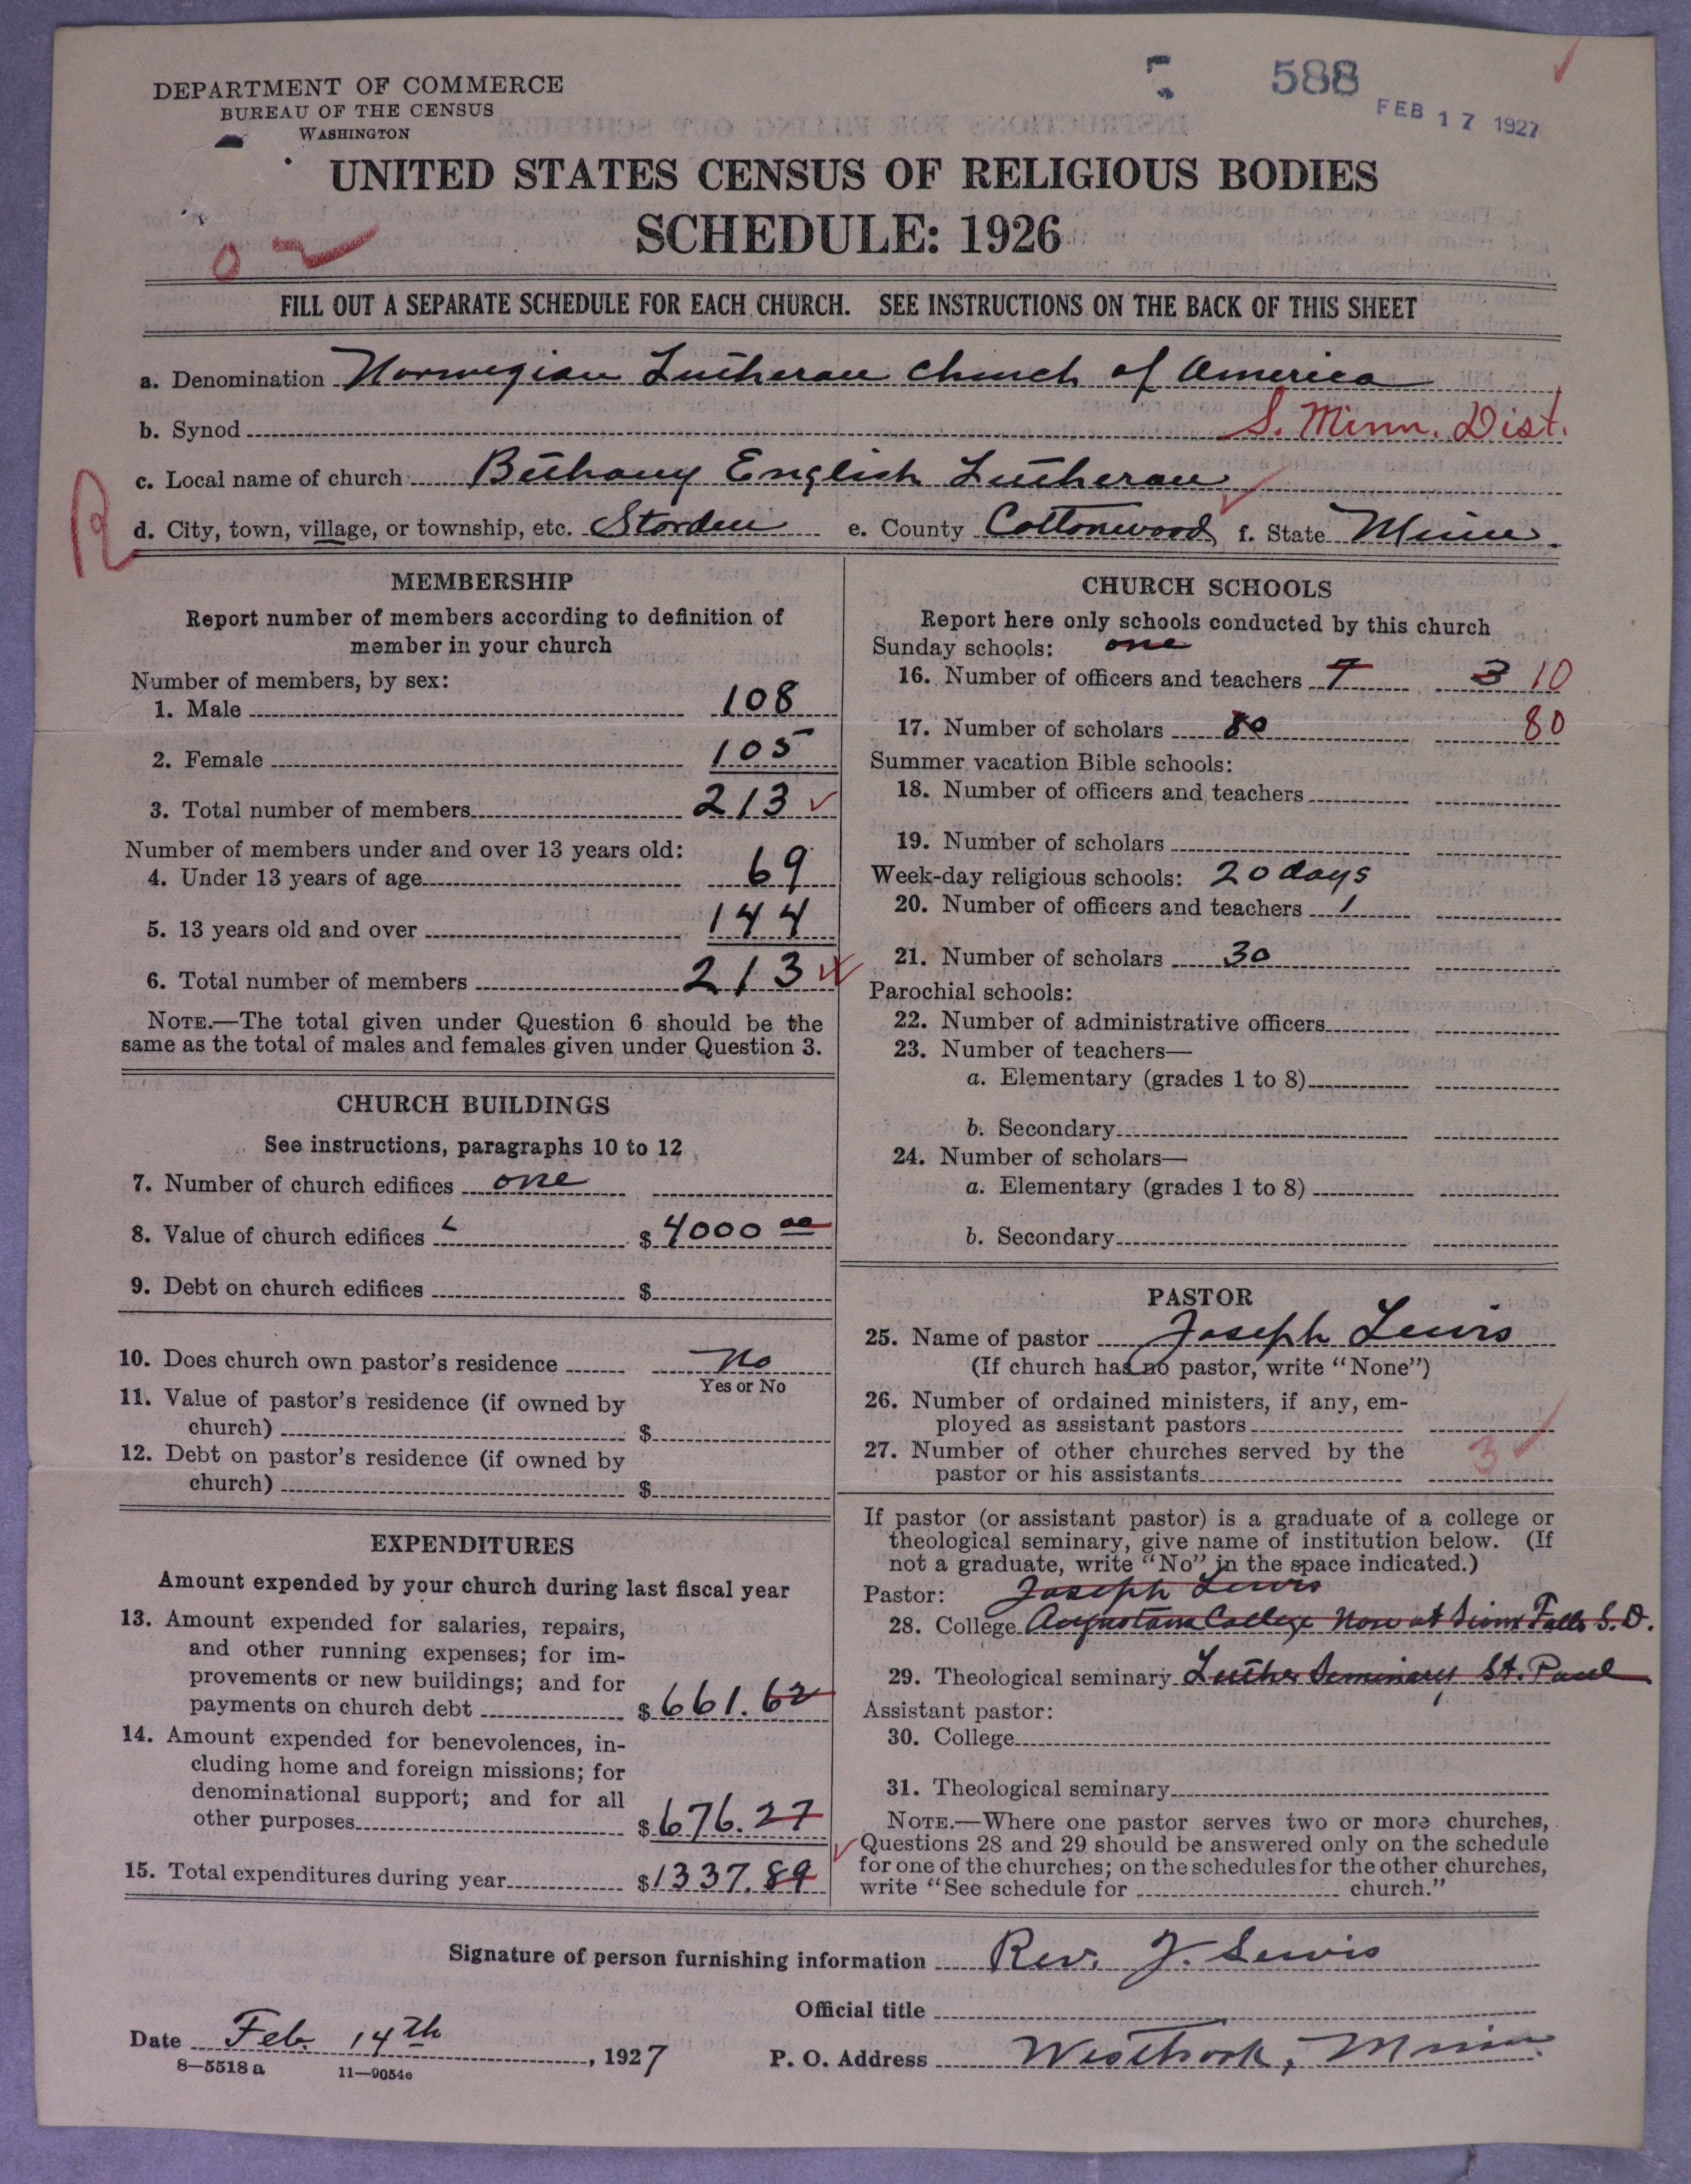 DEPARTMENT OF COMMERCE
BUREAU OF THE CENSUS
WASHINGTON
588
FEB 17 1927
UNITED STATES CENSUS OF RELIGIOUS BODIES
SCHEDULE: 1926
FILL OUT A SEPARATE SCHEDULE FOR EACH CHURCH. SEE INSTRUCTIONS ON THE BACK OF THIS SHEET
a. Denomination Norwegian Lutheran Church of America
b. Synod S. Minn. Dist.
c. Local name of church Bethany English Lutheran
R
d. City, town, village, or township, etc. Storden e. County Cottonwood f. State Minn.
MEMBERSHIP
Report number of members according to definition of
member in your church
Number of members, by sex:
1. Male 108
2. Female 105
3. Total number of members 213
Number of members under and over 13 years old:
4. Under 13 years of age 69
5. 13 years old and over 144
6. Total number of members 213
NOTE.—The total given under Question 6 should be the
same as the total of males and females given under Question 3.
CHURCH BUILDINGS
See instructions, paragraphs 10 to 12
7. Number of church edifices one
8. Value of church edifices $ 4000 00
9. Debt on church edifices $
10. Does church own pastor's residence No
Yes or No
11. Value of pastor's residence (if owned by
church) $
12. Debt on pastor's residence (if owned by
church) $
EXPENDITURES
Amount expended by your church during last fiscal year
13. Amount expended for salaries, repairs,
and other running expenses; for im-
provements or new buildings; and for
payments on church debt $ 661.62
14. Amount expended for benevolences, in-
cluding home and foreign missions; for
denominational support; and for all
other purposes $ 676.27
15. Total expenditures during year $ 1337.89
CHURCH SCHOOLS
Report here only schools conducted by this church
Sunday schools: one
16. Number of officers and teachers 7 3 10
17. Number of scholars 80 80
Summer vacation Bible schools:
18. Number of officers and teachers
19. Number of scholars
Week-day religious schools: 20 days
20. Number of officers and teachers 1
21. Number of scholars 30
Parochial schools:
22. Number of administrative officers
23. Number of teachers—
a. Elementary (grades 1 to 8)
b. Secondary
24. Number of scholars—
a. Elementary (grades 1 to 8)
b. Secondary
PASTOR
25. Name of pastor Joseph Lewis
(If church has no pastor, write "None")
26. Number of ordained ministers, if any, em-
ployed as assistant pastors
27. Number of other churches served by the
pastor or his assistants 3
If pastor (or assistant pastor) is a graduate of a college or
theological seminary, give name of institution below. (If
not a graduate, write "No" in the space indicated.)
Pastor: Joseph Lewis
28. College Augustana College Now at Sioux Falls S.D.
29. Theological seminary Luther Seminary St. Paul
Assistant pastor:
30. College
31. Theological seminary
NOTE.—Where one pastor serves two or more churches,
Questions 28 and 29 should be answered only on the schedule
for one of the churches; on the schedules for the other churches,
write "See schedule for church."
Signature of person furnishing information Rev. J. Lewis
Official title
Date Feb. 14th, 1927
P. O. Address Westbrook, Minn.
8—5518 a 11—9054e